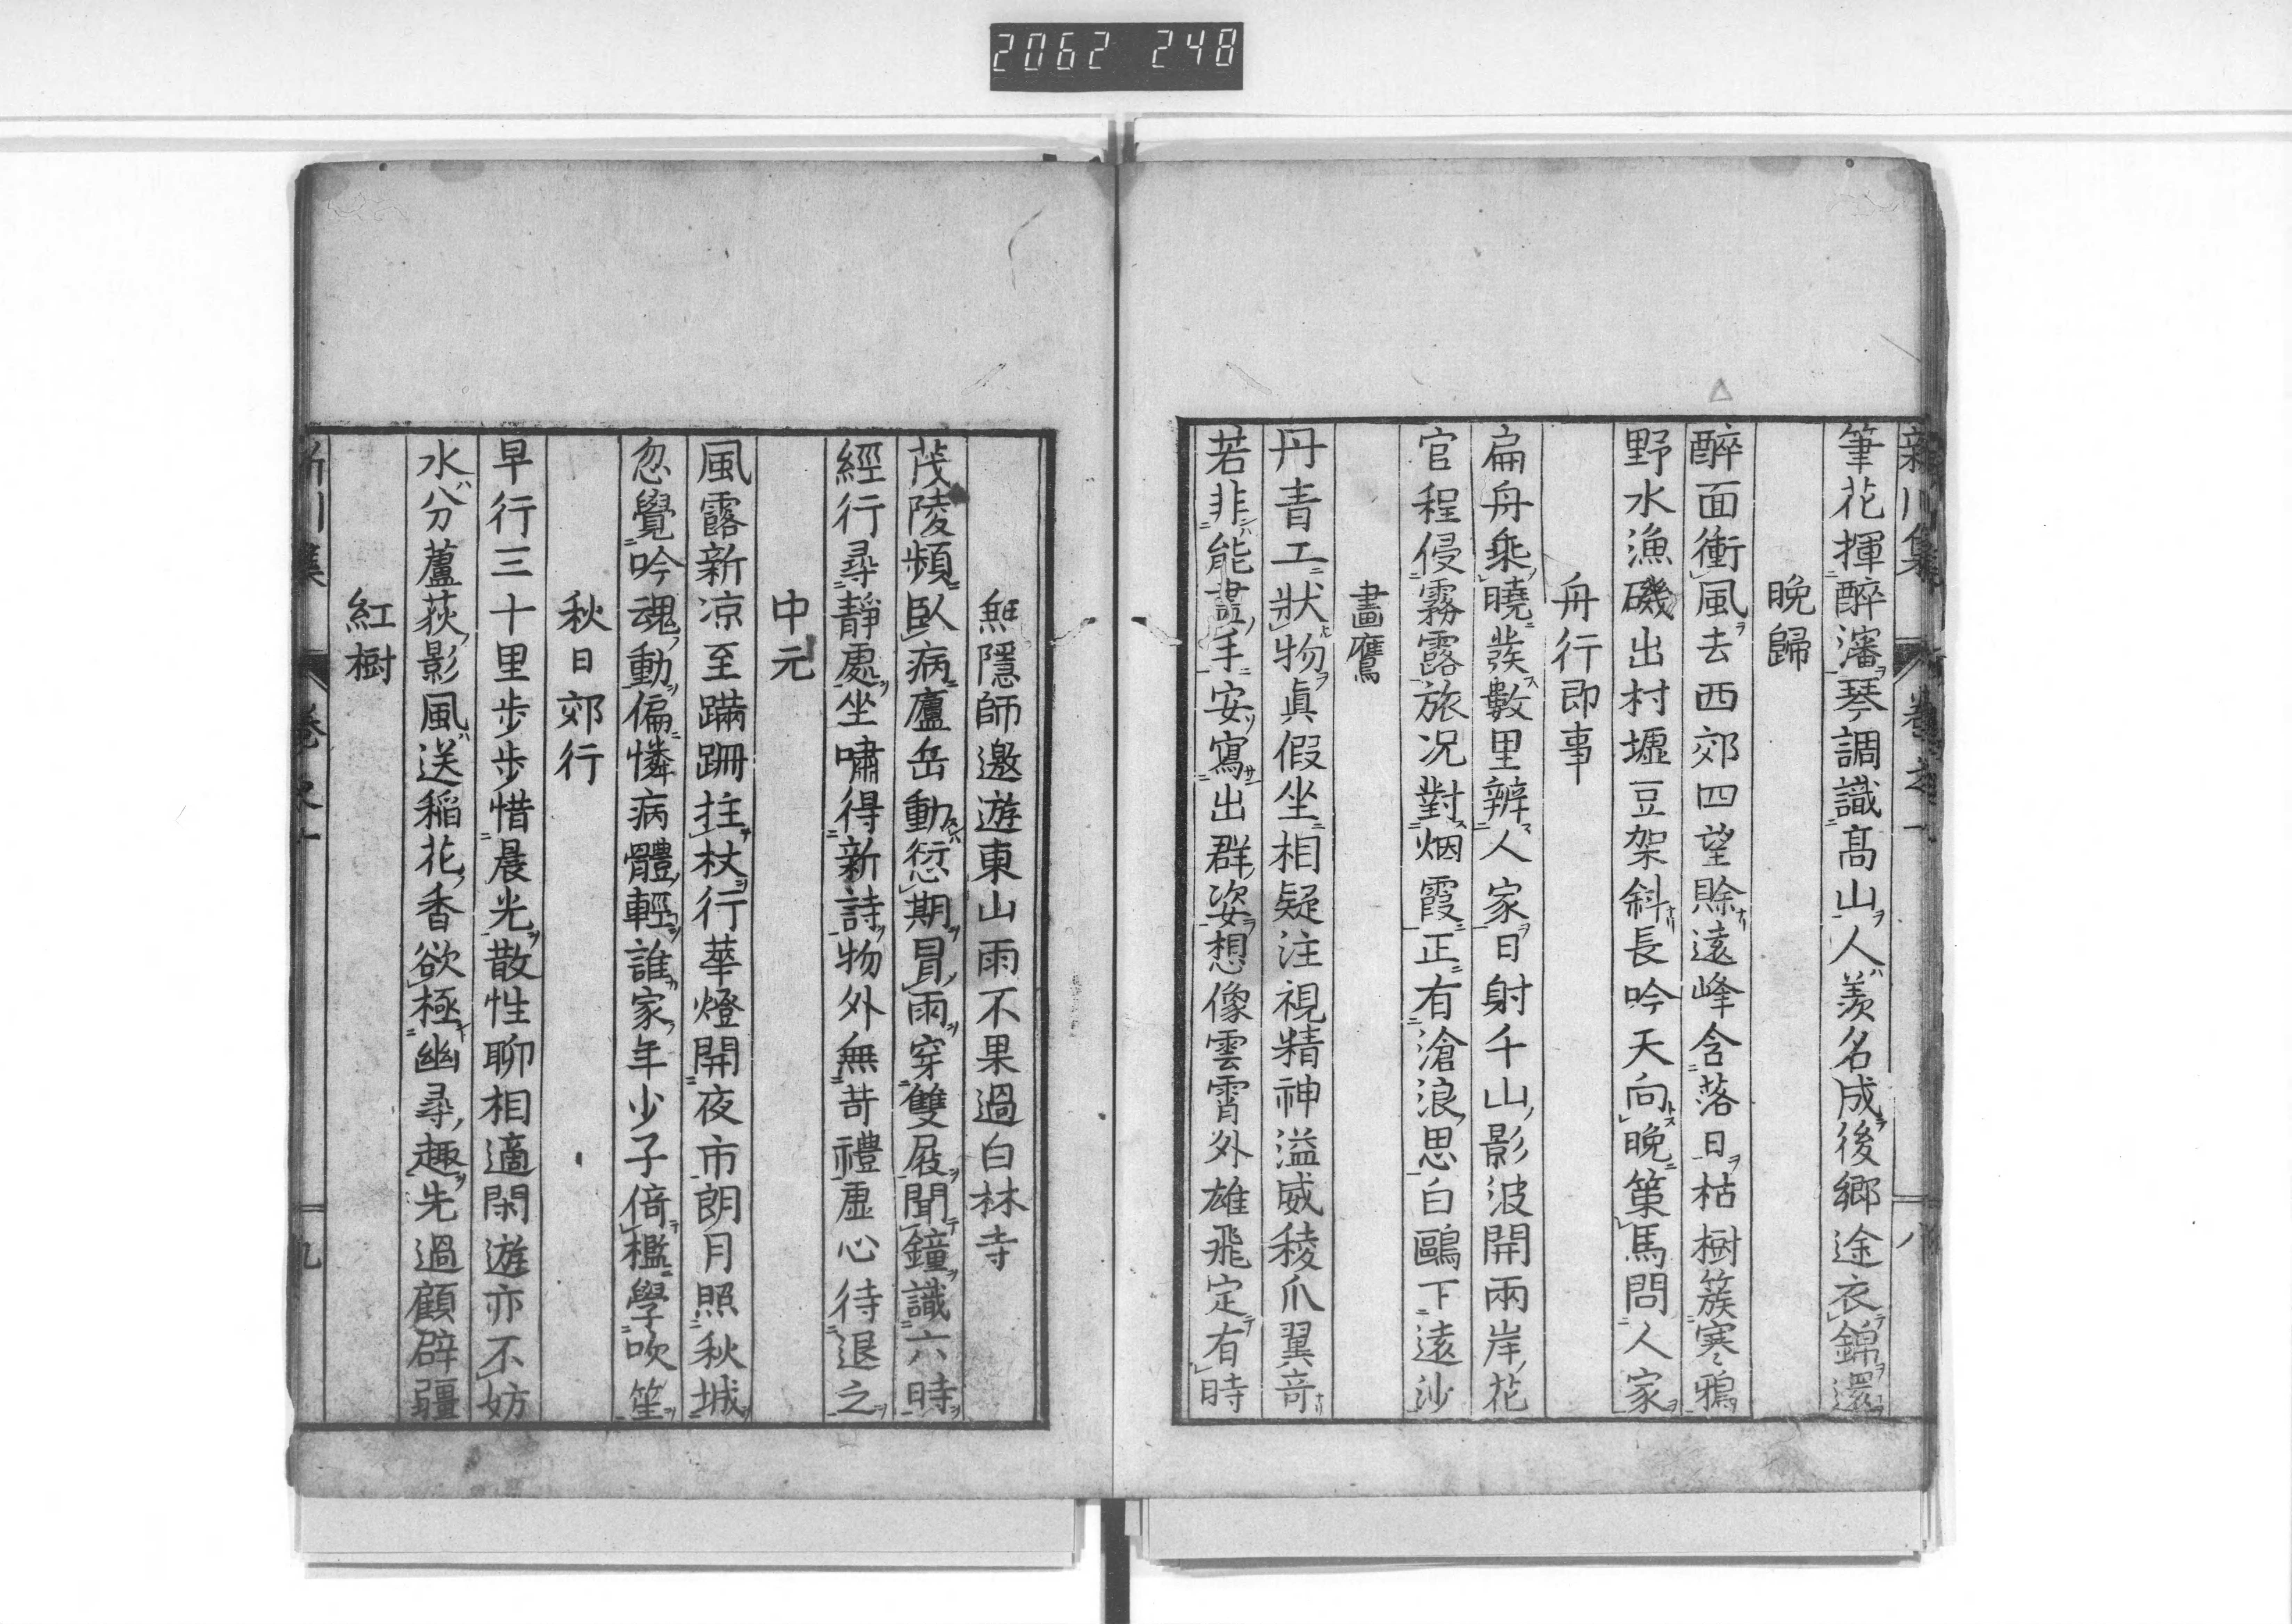 2062 248
筆花揮醉瀋琴調識髙山人羨名成後郷途衣錦還
晩歸
醉面衝風去西郊四望賖遠峰含落日枯樹簇寒鴉
野水漁磯出村墟豆架斜長吟天向晩策馬問人家
舟行即事
扁舟乘曉發數里辨人家日射千山影波開兩岸花
官程侵霧露旅况對烟霞正有滄浪思白鷗下遠沙
畫鷹
丹青工狀物眞假坐相疑注視精神溢威稜爪翼竒
若非能畫手安寫出群姿想像雲霄外雄飛定有時
無隱師邀遊東山雨不果過白林寺
茂陵頻臥病廬岳動愆期冐雨穿雙屐聞鐘識六時
經行尋靜處坐嘯得新詩物外無苛禮虛心待退之
中元
風露新凉至蹣跚拄杖行華燈開夜市朗月照秋城
忽覺吟魂動偏憐病體輕誰家年少子倚檻學吹笙
秋日郊行
早行三十里步步惜晨光散性聊相適閑遊亦不妨
水分蘆荻影風送稲花香欲極幽尋趣先過顧辟疆
紅樹